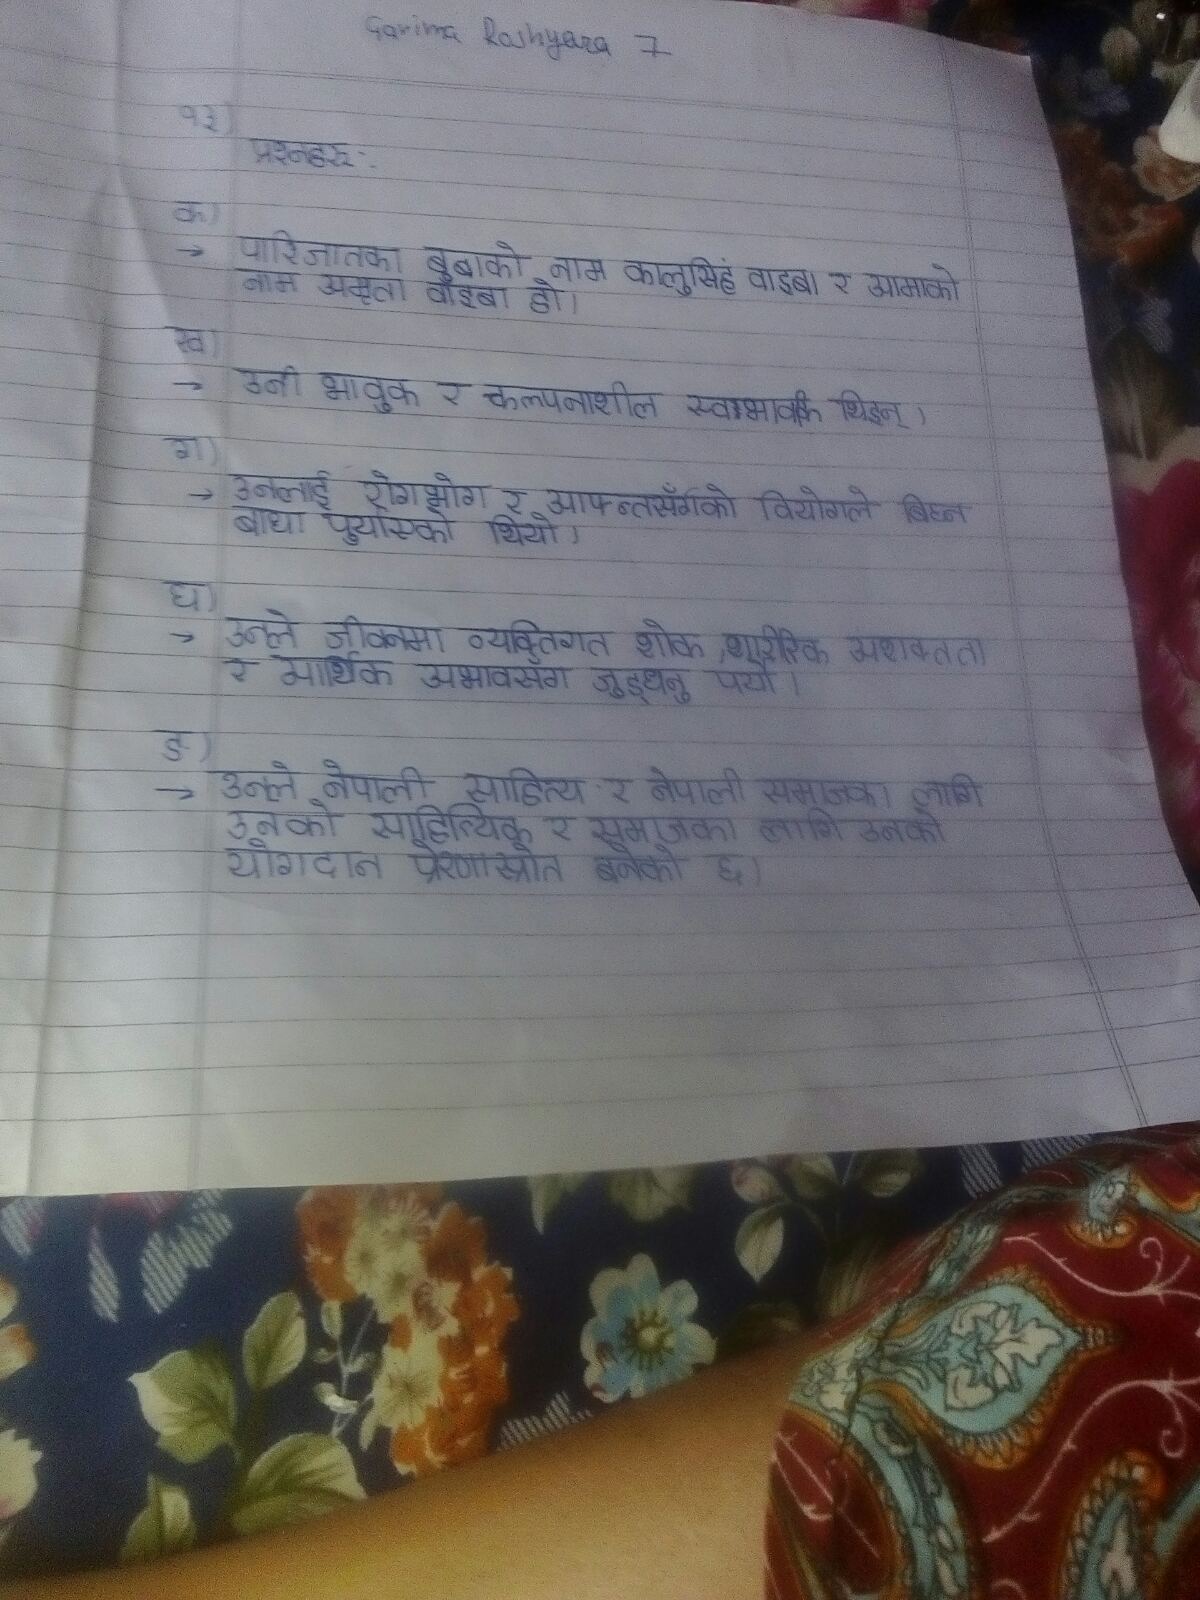 Garima Roshyara 7
१३)
प्रश्नहरु:-
क)
→ पारिजातका बुबाको नाम कालुसिहं वाइबा र आमाको
नाम अमृता वाइबा हो।
ख)
→ उनी भावुक र कल्पनाशील स्वाभावकि थिइन्।
ग)
→ उनलाई रोगभोग र आफन्तसँगको वियोगले बिघ्न
बाधा पुर्याएको थियो।
घ)
→ उनले जीवनमा व्यक्तिगत शोक, शारीरिक अशक्तता
र आर्थिक अभावसँग जुड्धनु पर्यो।
ङ)
→ उनले नेपाली साहित्य र नेपाली समाजका लागि
उनको साहित्यिक र समाजका लागि उनको
योगदान प्रेरणास्रोत बनेको छ।